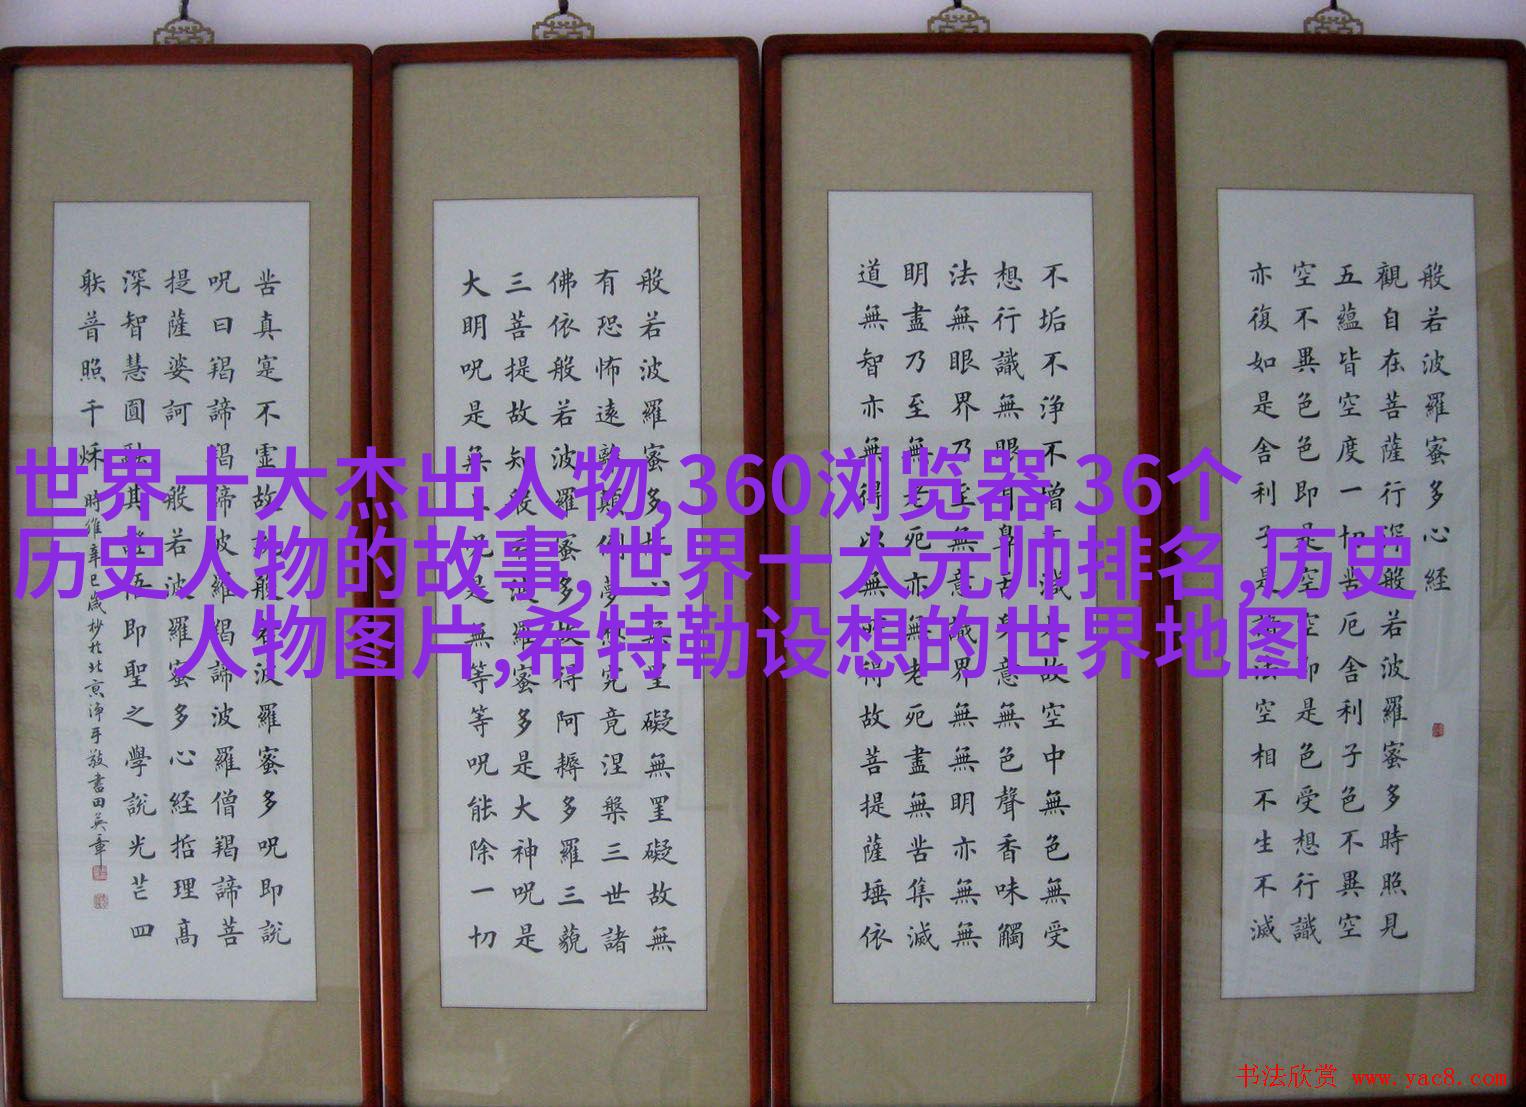 世界十大杰出人物,360浏览器 36个
历史人物的故事,世界十大元帅排名,历史
人物图片,希特勒设想的世界地图
般若波羅蜜多心経
觀自在菩薩行深般若波羅蜜多時照見
五蘊皆空度一切苦厄舍利子色不異空
空不異色色即是空空即是色受想行識
亦復如是舍利子是諸法空相不生不滅
不垢不浄不增不減是故空中無色無受
想行識無眼耳鼻舌身意無色聲香味觸
法無眼界乃至無意識界無無明亦無無
明盡乃至無老死亦無老死盡無苦集滅
道無智亦無得以無所得故菩提薩埵依
般若波羅蜜多故心無罣礙無罣礙故無
有恐怖遠離顛倒夢想究竟涅槃三世諸
佛依般若波羅蜜多故得阿耨多羅三藐
三菩提故知般若波羅蜜多是大神呪是
大明呪是無上呪是無等等呪能除一切
苦真寔不虛故說般若波羅蜜多呪即說
呪曰羯諦羯諦波羅羯諦波羅僧羯諦菩
提薩婆訶 般若波羅蜜多心経哲理高
深智慧圓融其證悟即聖之學說光芒四
躲普照千秌 時維辛巳歲杪於北京淨手敬書田英章
书法欣赏 www.yac8.com